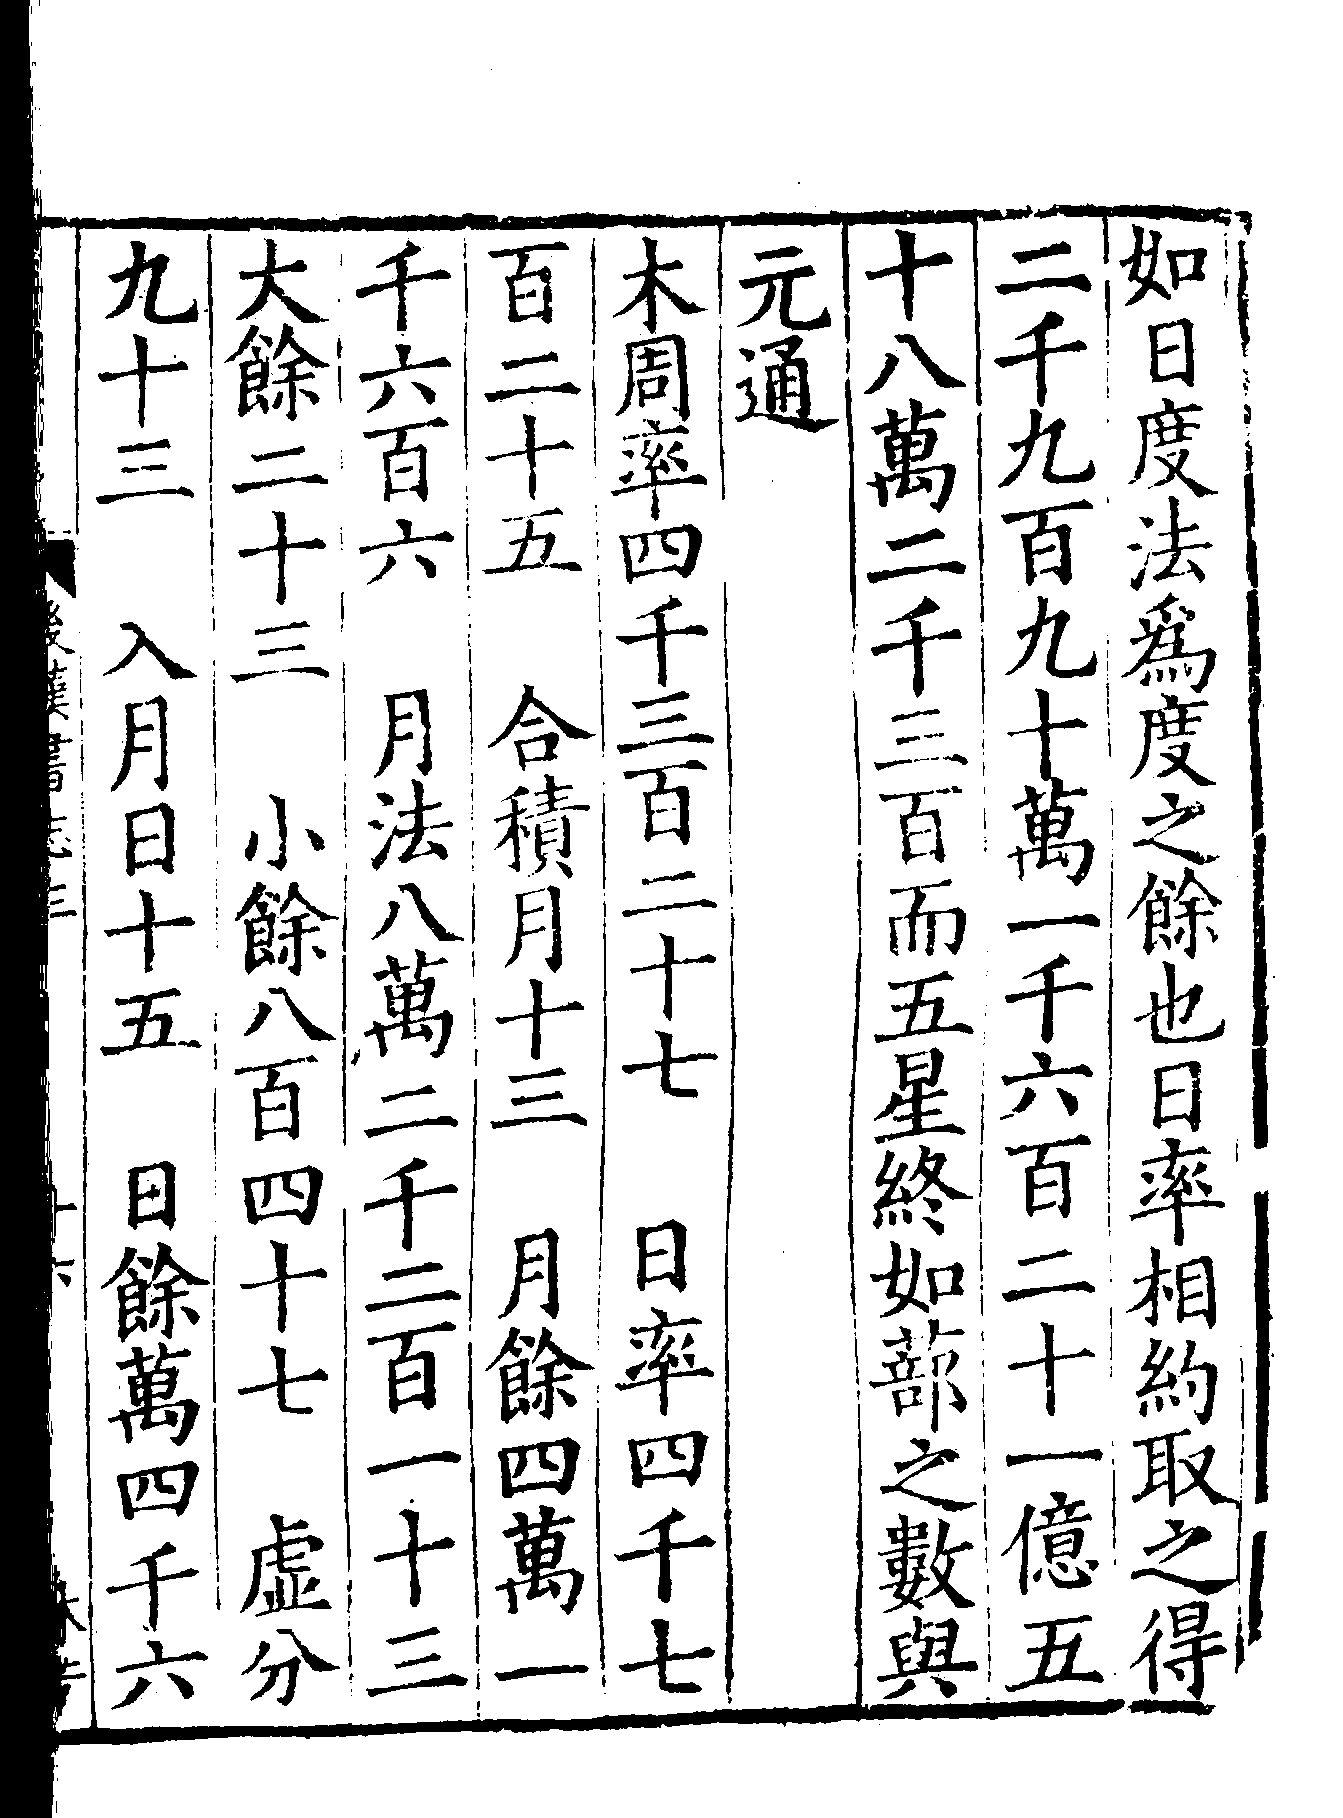 如日度法爲度之餘也日率相約取之得
二千九百九十萬一千六百二十一億五
十八萬二千三百而五星終如蔀之數與
元通
木周率四千三百二十七　日率四千七
百二十五　合積月十三　月餘四萬一
千六百六　月法八萬二千二百一十三
大餘二十三　小餘八百四十七　虛分
九十三　入月日十五　日餘萬四千六
後漢書志三
十六